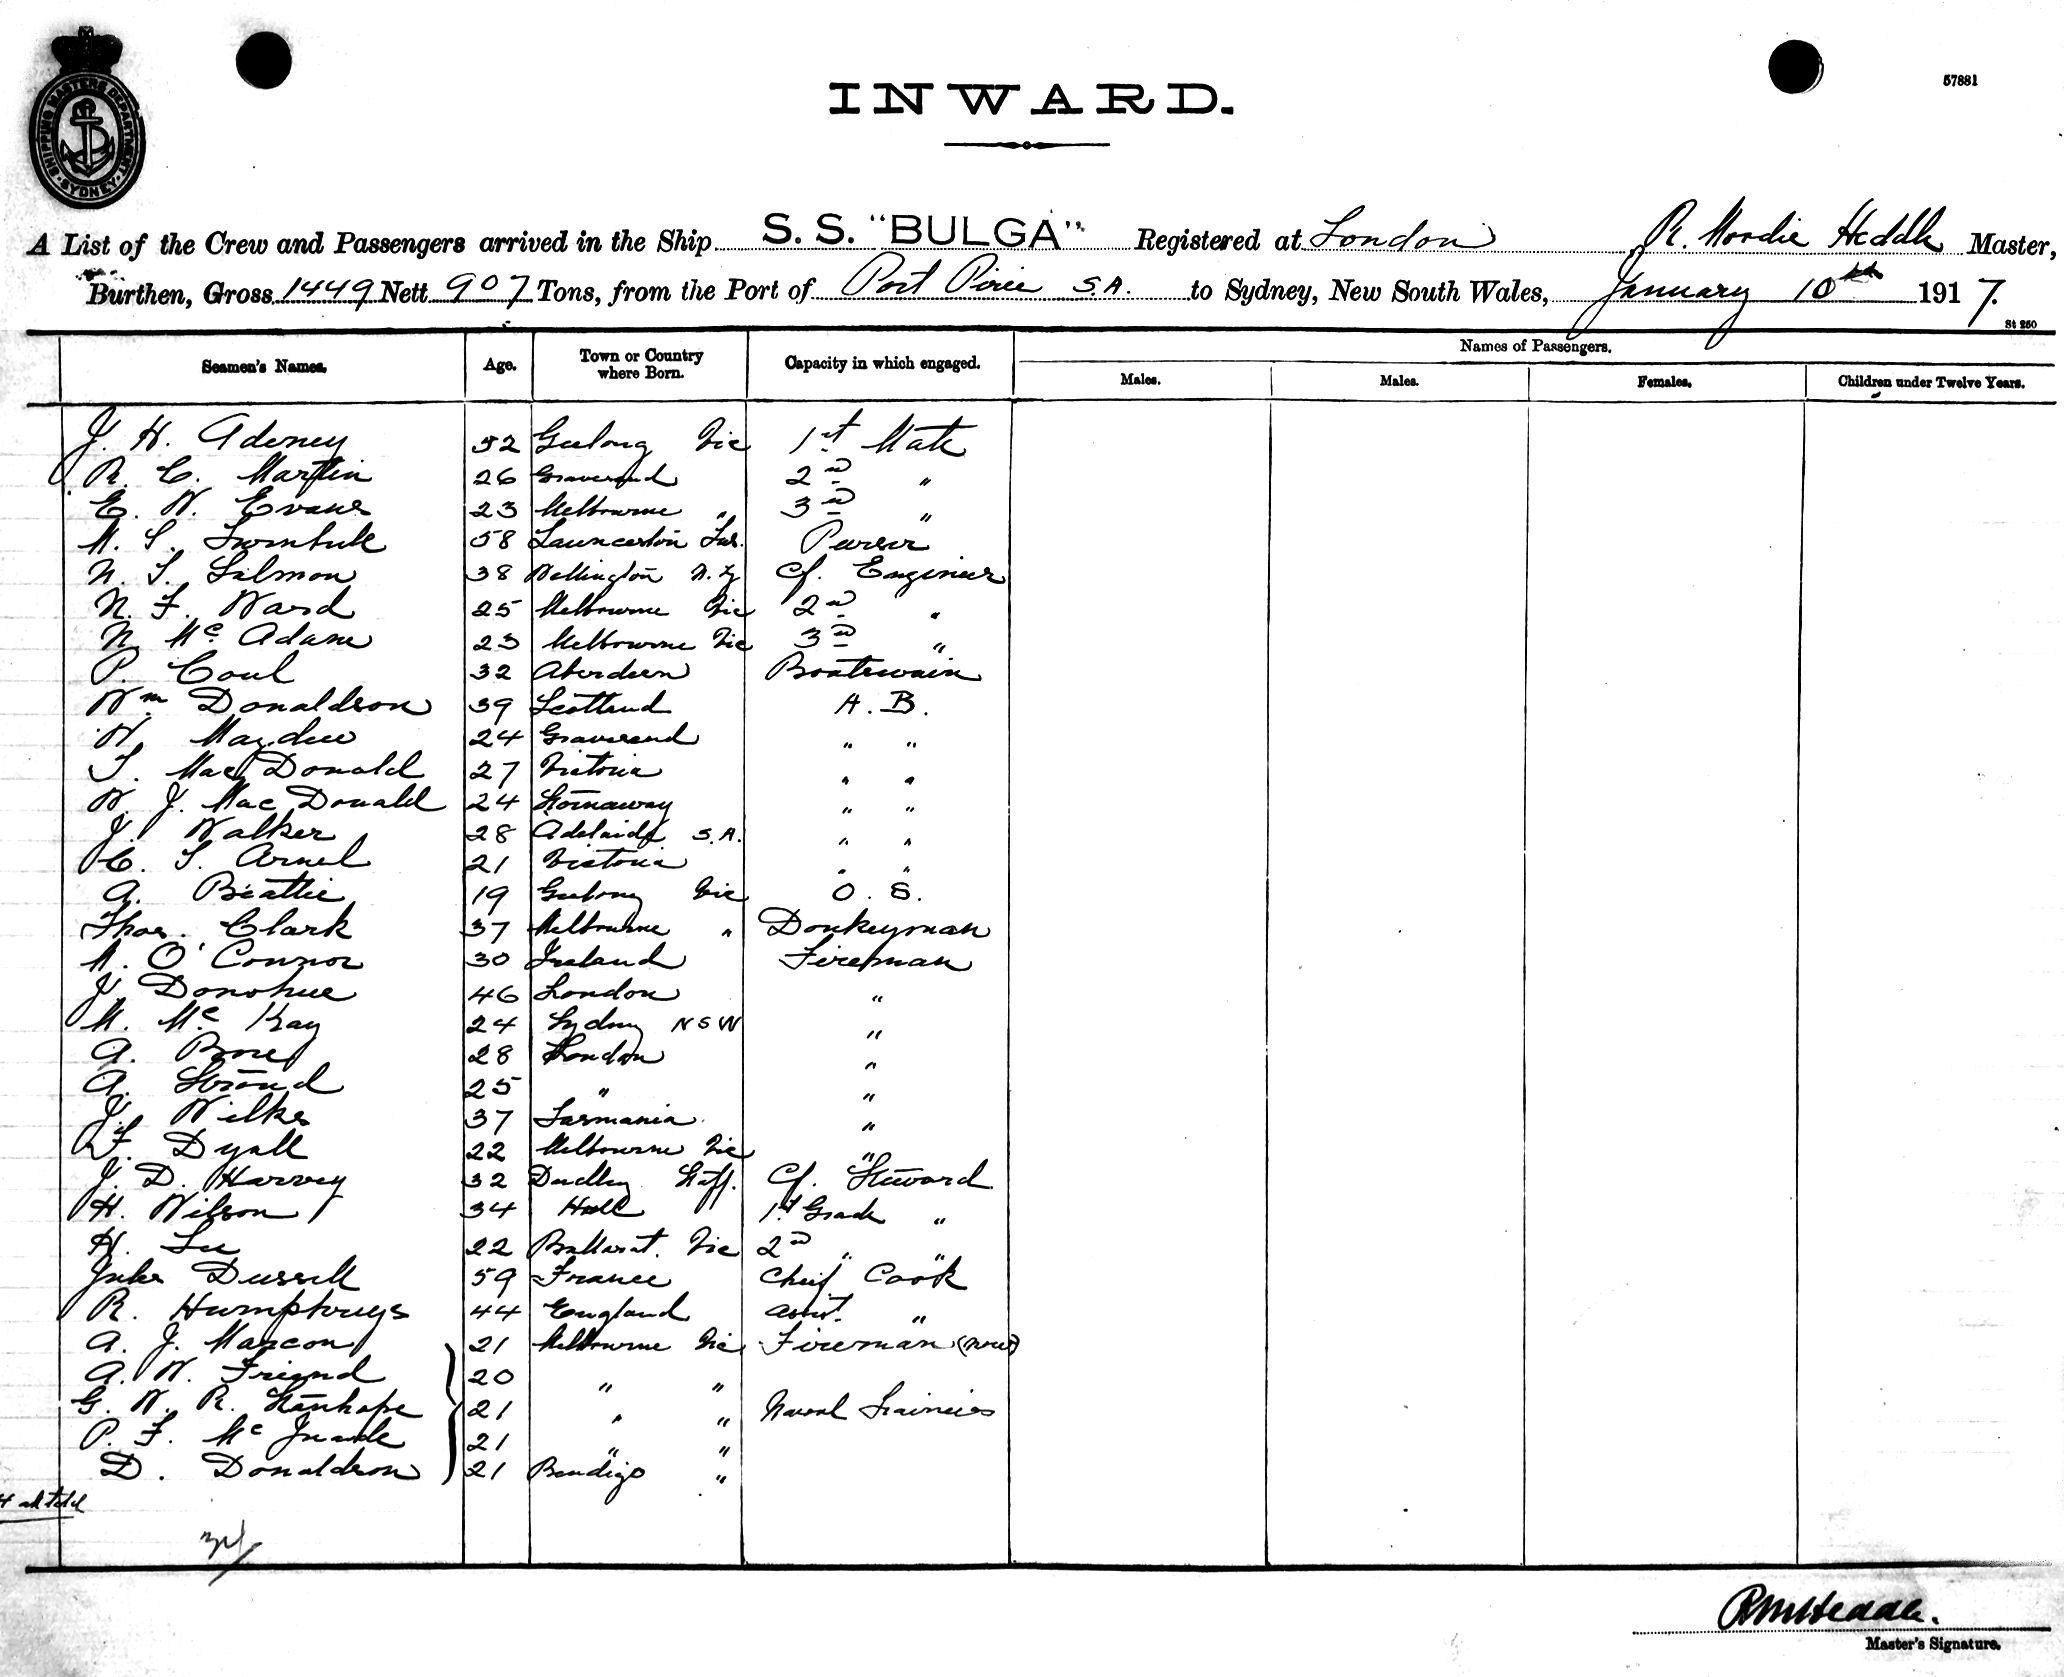 SHIPPING MASTERS DEPARTMENT
SYDNEY
57881
INWARD.
A List of the Crew and Passengers arrived in the Ship S. S. "BULGA" Registered at London R. Moodie Heddle Master,
Burthen, Gross 1449 Nett 907 Tons, from the Port of Port Pirie S.A. to Sydney, New South Wales, January 10th 1917.
St 250
Seamen's Names. Age. Town or Country where Born. Capacity in which engaged. Names of Passengers.
Males. Males. Females. Children under Twelve Years.
J. H. Adeney 52 Geelong Vic 1st Mate
R. C. Martin 26 Gravesend 2nd "
E. W. Evans 23 Melbourne " 3rd "
M. S. Turnbull 58 Launceston Tas. Purser
N. S. Salmon 38 Wellington N.Z Cf. Engineer
N. F. Ward 25 Melbourne Vic 2nd "
N. Mc Adam 23 Melbourne Vic 3rd "
P. Coul 32 Aberdeen Boatswain
Wm Donaldson 39 Scotland A. B.
W. 24 Gravesend " "
S. Mac Donald 27 Victoria " "
W. J. Mac Donald 24 Stornaway " "
J. Walker 28 Adelaide S.A. " "
C. S. Arnel 21 Victoria " "
A. Beattie 19 Geelong Vic O. S.
Thos. Clark 37 Melbourne " Donkeyman
M. O'Connor 30 Ireland Fireman
J. Donohue 46 London "
M. Mc Kay 24 Sydney NSW "
A. 28 London "
A. Stroud 25 " "
J. Wilks 37 Tasmania "
F. Dyall 22 Melbourne Vic "
J. D. Harvey 32 Dudley Staff. Cf. Steward
H. Wilson 34 Hull 1st Grade "
H. Lee 22 Ballarat. Vic 2nd " "
Jules 59 France Chief Cook
R. Humphreys 44 England Asst. "
A. J. Marcon 21 Melbourne Vic Fireman
A. W. Friend 20 " "
G. W. R. Stanhope 21 " " Naval Trainees
P. F. Mc 21 " "
D. Donaldson 21 Bendigo "
all told
34
RM Heddle.
Master's Signature.